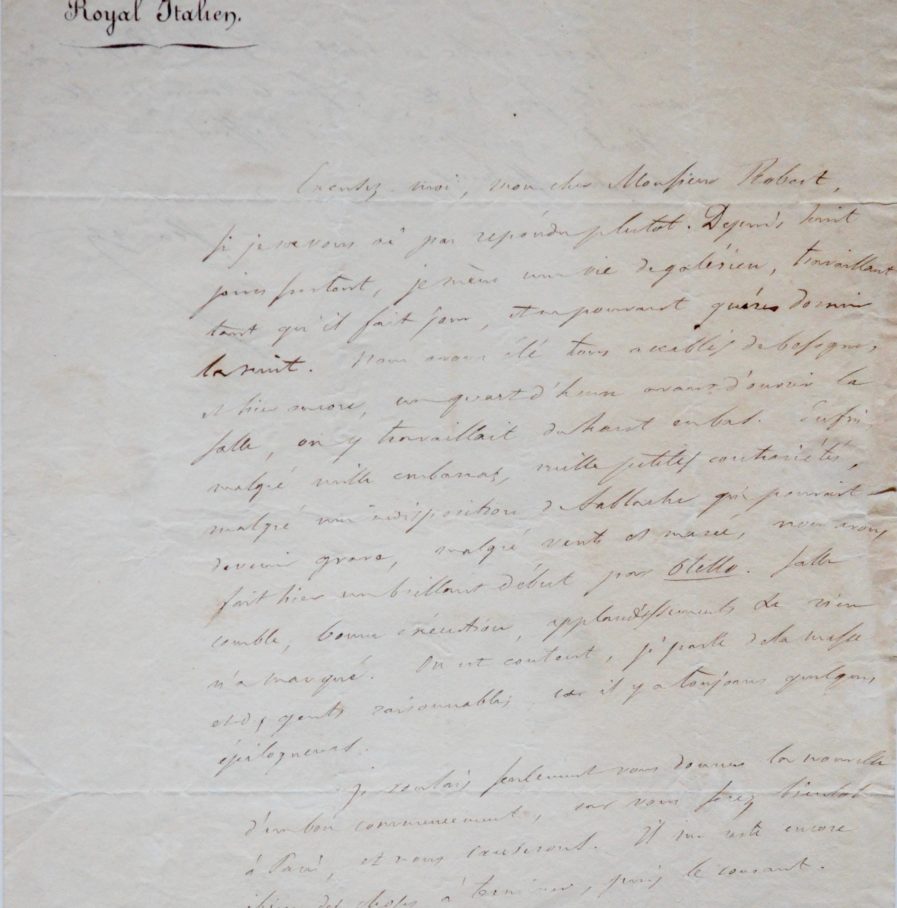 Royal Italien.
Excusez moi, mon cher Monsieur Robert,
si je ne vous ai pas répondu plutot. Depuis huit
jours surtout, je mène une vie de galérien, travaillant
tant qu'il fait jour, et ne pouvant guères dormir
la nuit. Nous avons été tous accablés de besogne,
et hier encore, un quart d'heure avant d'ouvrir la
salle, on y travaillait du haut en bas. Enfin
malgré mille embarras, mille petites contrariétés,
malgré une indisposition de Lablache qui pouvait
devenir grave, malgré vents et marée, nous avons
fait hier un brillant début par Otello. Salle
comble, bonne exécution, applaudissements &a rien
n'a manqué. On est content, je parle de la masse
et des gents raisonnables car il y a toujours quelques
épilogueurs.
Je voulais seulement vous donner la nouvelle
d'un bon commencement, car vous serez bientot
à Paris, et nous causerons. Il me reste encore
bien des choses à terminer, puis le courant.